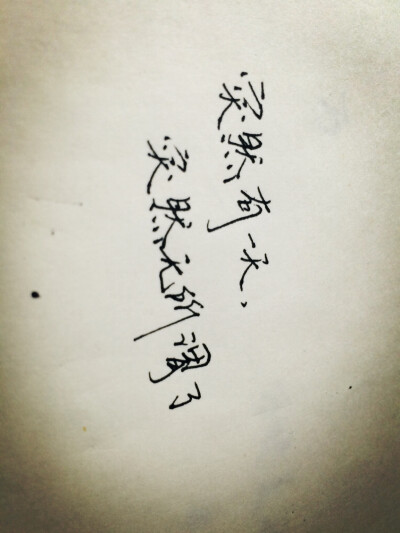 突然有一天，
突然无所谓了